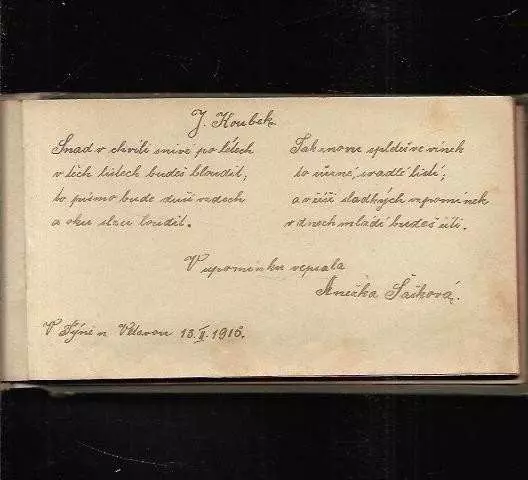 J. Koubek
Snad v chvíli snivé, po létech
v těch listech budeš bloudit,
to písmo bude duší vzdech
a oku slzu loudit.
Tak znovu spleteš ve vínek
to různé, svadlé listí,
a v říši sladkých vzpomínek
v dnech mládí budeš čísti.
V upomínku vepsala
Anežka Šašková.
V Týně n Vltavou 13. II. 1916.